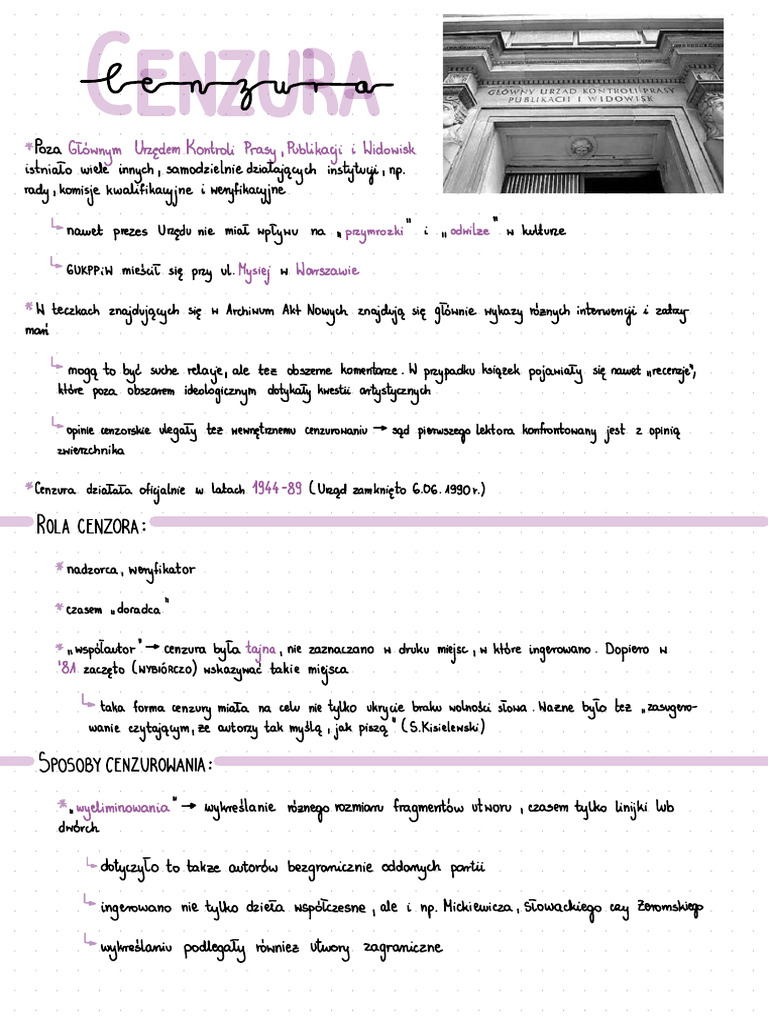 CENZURA
cenzura
GŁÓWNY URZĄD KONTROLI PRASY
PUBLIKACJI I WIDOWISK
*Poza Głównym Urzędem Kontroli Prasy, Publikacji i Widowisk
istniało wiele innych, samodzielnie działających instytucji, np.
rady, komisje kwalifikacyjne i weryfikacyjne
nawet prezes Urzędu nie miał wpływu na „przymrozki” i „odwilże” w kulturze
GUKPPiW mieścił się przy ul. Mysiej w Warszawie
*W teczkach znajdujących się w Archiwum Akt Nowych znajdują się głównie wykazy różnych interwencji i zatrzy-
mań
mogą to być suche relacje, ale też obszerne komentarze. W przypadku książek pojawiały się nawet „recenzje”,
które poza obszarem ideologicznym dotykały kwestii artystycznych
opinie cenzorskie ulegały też wewnętrznemu cenzurowaniu → sąd pierwszego lektora konfrontowany jest z opinią
zwierzchnika
*Cenzura działała oficjalnie w latach 1944-89 (Urząd zamknięto 6.06.1990r.)
ROLA CENZORA:
*nadzorca, weryfikator
*czasem „doradca”
*„współautor” → cenzura była tajna, nie zaznaczano w druku miejsc, w które ingerowano. Dopiero w
'81 zaczęto (WYBIÓRCZO) wskazywać takie miejsca
taka forma cenzury miała na celu nie tylko ukrycie braku wolności słowa. Ważne było też „zasugero-
wanie czytającym, że autorzy tak myślą, jak piszą” (S.Kisielewski)
SPOSOBY CENZUROWANIA:
*„wyeliminowania” → wykreślanie różnego rozmiaru fragmentów utworu, czasem tylko linijki lub
dwórch
dotyczyło to także autorów bezgranicznie oddanych partii
ingerowano nie tylko dzieła współczesne, ale i np. Mickiewicza, Słowackiego czy Żeromskiego
wykreślaniu podlegały również utwory zagraniczne